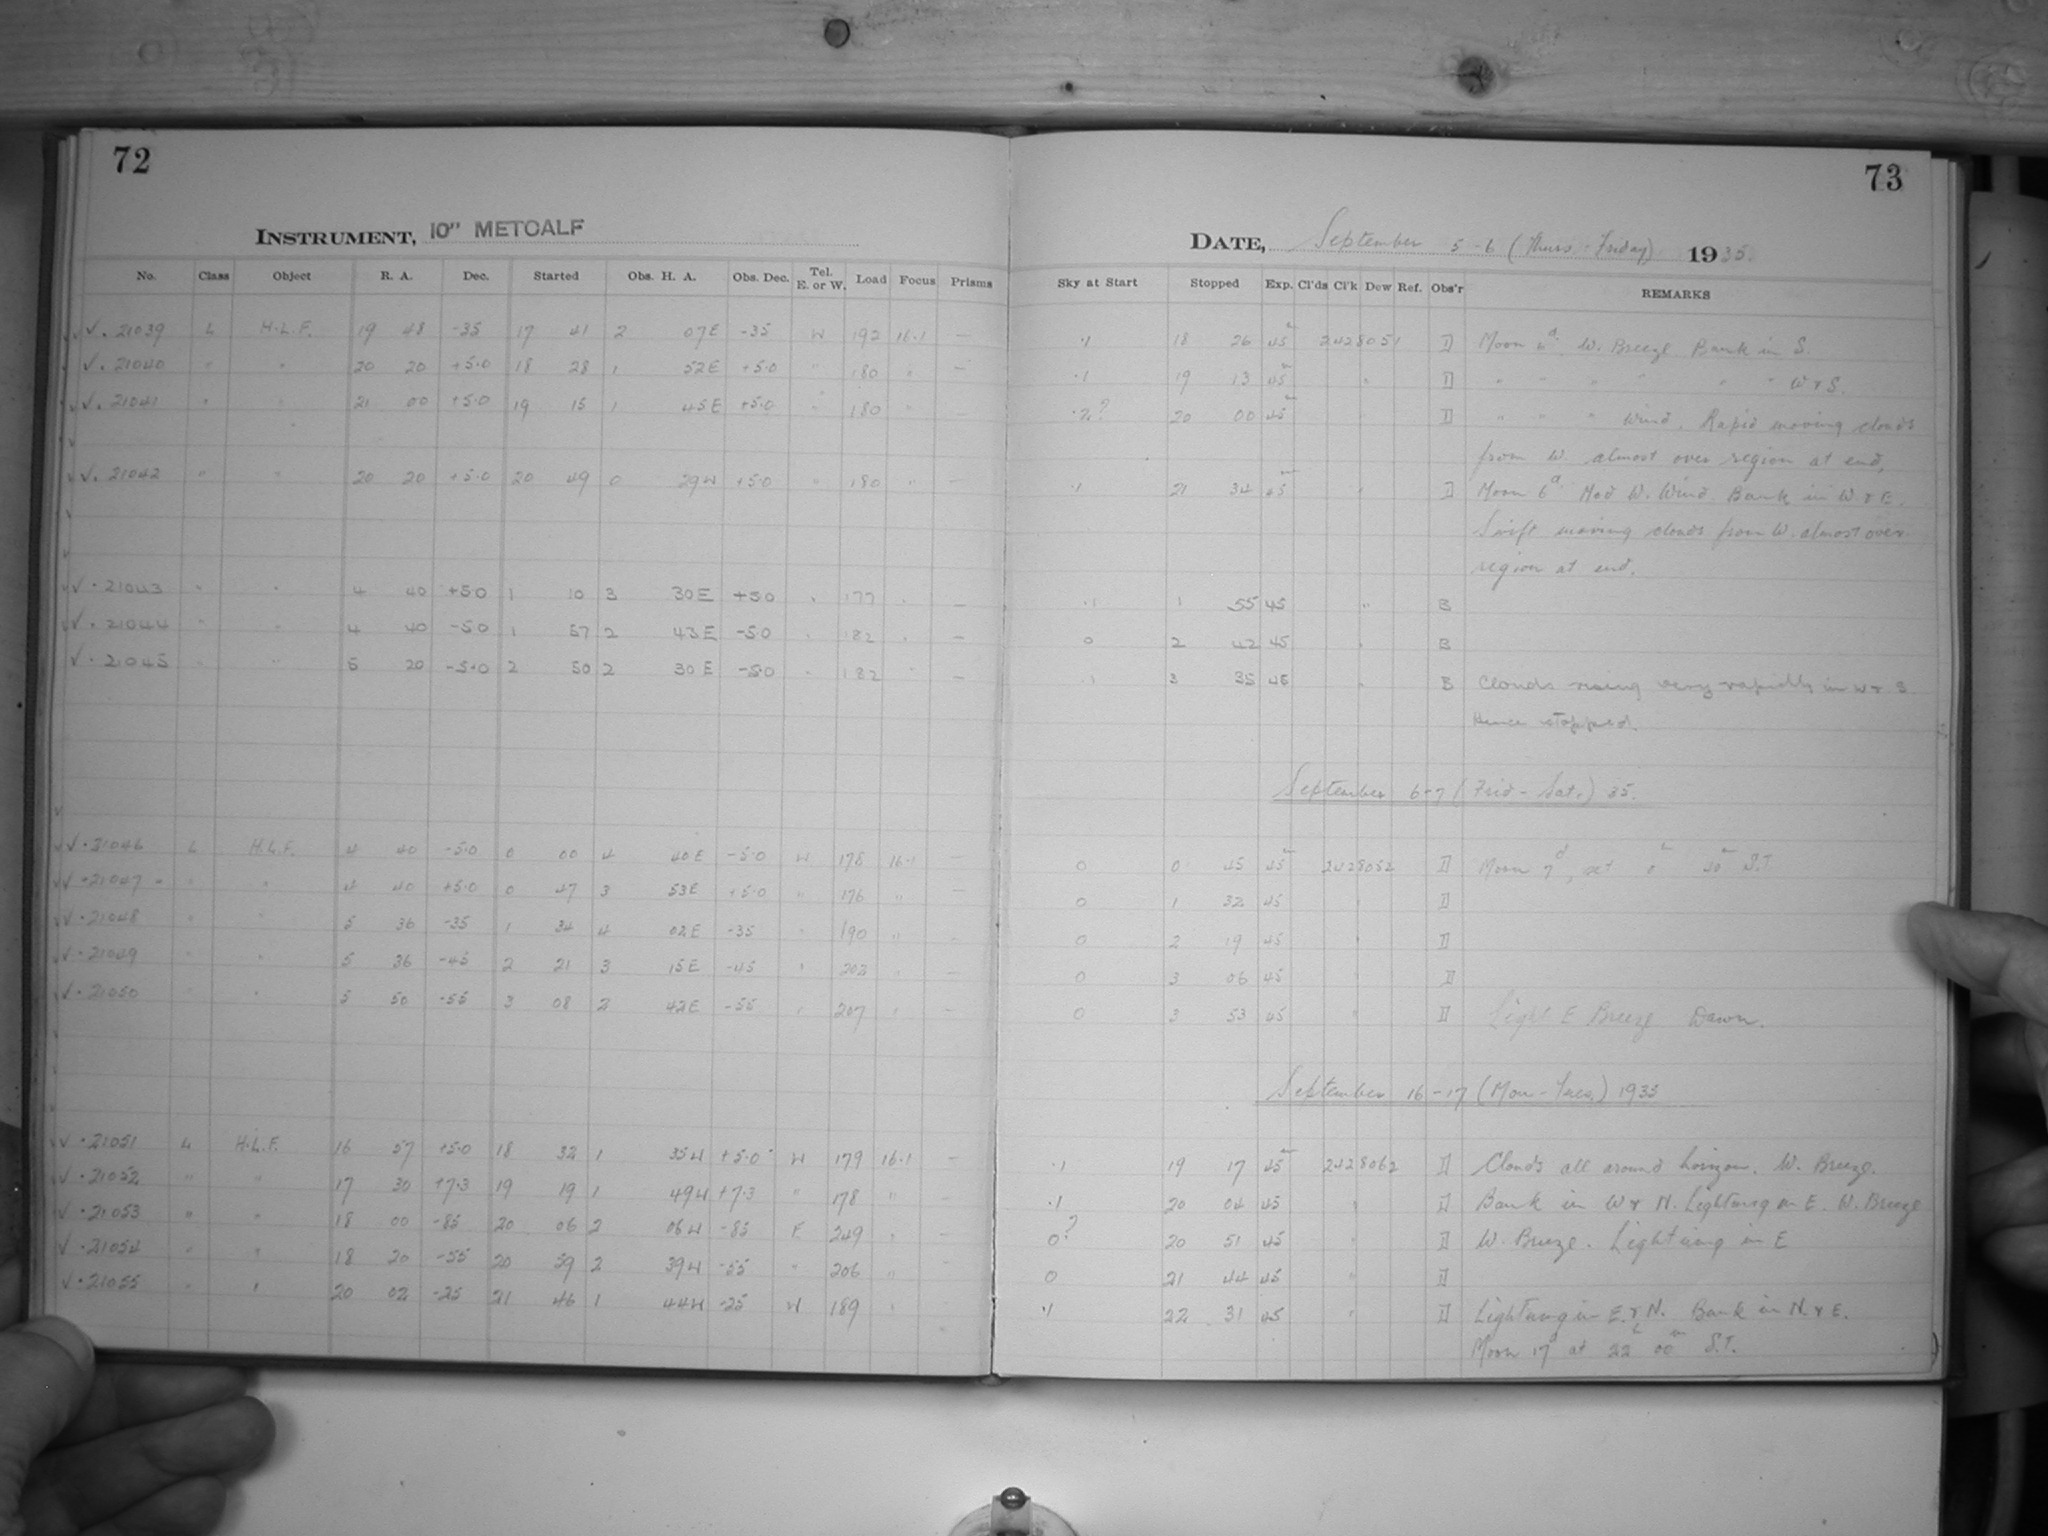 72
INSTRUMENT, 10" METCALF
No. Class Object R. A. Dec. Started Obs. H. A. Obs. Dec. Tel. E. or W. Load Focus Prisms
√. 21039 L H.L.F. 19 48 -35 17 41 2 07E -35 W 192 16.1 —
√. 21040 " " 20 20 +5.0 18 28 1 52E +5.0 " 180 " —
√. 21041 " " 21 00 +5.0 19 15 1 45E +5.0 " 180 " —
√. 21042 " " 20 20 +5.0 20 49 0 29W +5.0 " 180 " —
√. 21043 " " 4 40 +5.0 1 10 3 30E +5.0 " 177 " —
√. 21044 " " 4 40 -5.0 1 57 2 43E -5.0 " 182 " —
√. 21045 " " 5 20 -5.0 2 50 2 30E -5.0 " 182 " —
√. 21046 L H.L.F. 4 40 -5.0 0 00 4 40E -5.0 W 178 16.1 —
√. 21047 " " 4 40 +5.0 0 47 3 53E +5.0 " 176 " —
√. 21048 " " 5 36 -35 1 34 4 02E -35 " 190 " —
√. 21049 " " 5 36 -45 2 21 3 15E -45 " 202 " —
√. 21050 " " 5 50 -55 3 08 2 42E -55 " 207 " —
√. 21051 L H.L.F. 16 57 +5.0 18 32 1 35W +5.0 W 179 16.1 —
√. 21052 " " 17 30 +7.3 19 19 1 49W +7.3 " 178 " —
√. 21053 " " 18 00 -85 20 06 2 06W -85 E 249 " —
√. 21054 " " 18 20 -55 20 59 2 39W -55 " 206 " —
√. 21055 " " 20 02 -25 21 46 1 44W -25 W 189 " —
73
DATE, September 5-6 (Thurs - Friday) 1935.
Sky at Start Stopped Exp. Cl'ds Cl'k Dew Ref. Obs'r REMARKS
.1 18 26 45 2428051 D Moon 6d. W. Breeze Bank in S.
.1 19 13 45 " D " " " " " " W & S.
.2? 20 00 45 " D " " " Wind. Rapid moving clouds
from W. almost over region at end.
.1 21 34 45 " D Moon 6d. Mod W. Wind Bank in W & E.
Swift moving clouds from W. almost over
region at end.
.1 1 55 45 " B
0 2 42 45 " B
.1 3 35 45 " B Clouds rising very rapidly in W & S
Hence stopped.
September 6-7 (Frid - Sat.) 35.
0 0 45 45 2428052 D Moon 7d, set 40m S.T.
0 1 32 45 " D
0 2 19 45 " D
0 3 06 45 " D
0 3 53 45 " D Light E Breeze Dawn.
September 16-17 (Mon - Tues.) 1935
.1 19 17 45 2428062 D Clouds all around horizon. W. Breeze.
.1 20 04 45 " D Bank in W & N. Lightning in E. W. Breeze
0? 20 51 45 " D W. Breeze. Lightning in E
0 21 44 45 " D
.1 22 31 45 " D Lightning in E. & N. Bank in N. & E.
Moon 17d at 22h 00m S.T.